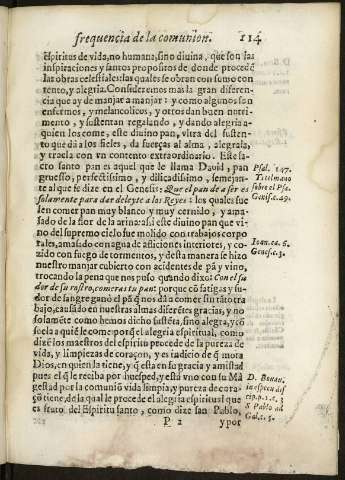 frequencia de la comunion. 114
Espiritus de vida, no humana, sino diuina, que son las
inspiraciones y santos propositos de donde proceden
las obras celestiales: las quales se obran con sumo con
tento, y alegria. Consideremos mas la gran diferen
cia que ay de manjar a manjar: y como algunos son
enfermos, y melancolicos, y otros dan buen nutri-
mento, y sustentan regalando, y dando alegria a
quien los come, este diuino pan, vltra del susten-
to que dà a los fieles, da fuerças al alma, alegrala,
y tracla con vn contento extraordinario. Este sa-
cro santo pan es aquel que le llama Dauid, pan
gruesso, perfectissimo, y dilicadissimo, semejan-
te al que se dize en el Genesis: Que el pan de aser es
solamente para dar deleyte a los Reyes: los quales sue
len comer pan muy blanco y muy cernido, y ama-
sado de la flor de la arina: assi este diuino pan que vi-
no del supremo cielo fue molido con trabajos corpo
rales, amasado con agua de afliciones interiores, y co-
zido con fuego de tormentos, y desta manera se hizo
nuestro manjar cubierto con acidentes de pã y vino,
trocando la pena que nos puso quando dixo: Con el su
dor de su rostro, comeras tu pan: porque cõ fatigas y su-
dor de sangre ganò el pã q̃ nos dà a comer sin tãto tra
bajo, causado en nuestras almas diferẽtes gracias, y no
solamẽte como hemos dicho sustẽta, sino alegra, y cõ
suela a quiẽ le come: porq̃ el alegria espiritual, como
dizẽ los maestros del espiritu procede de la pureza de
vida, y limpiezas de coraçon, y es indicio de q̃ mora
Dios, en quien la tiene, y q̃ esta en su gracia y amistad
pues el q̃ le reciba por huesped, y està vno con su Ma
gestad por la comuniõ vida limpia, y pureza de cora-
çõ tiene, de la qual le procede al alegria espiritual que
es fruto del Espiritu santo, como dize san Pablo,
P 2 y por
Psal. 147.
Titelmano
sobre el Psa.
Genes. c. 49.
Ioan. ca. 6.
Genes. c. 3.
D. Bonau.
in specu dis
cip. p. 1. c. 3
S Pablo ad
Gal. c. 5.